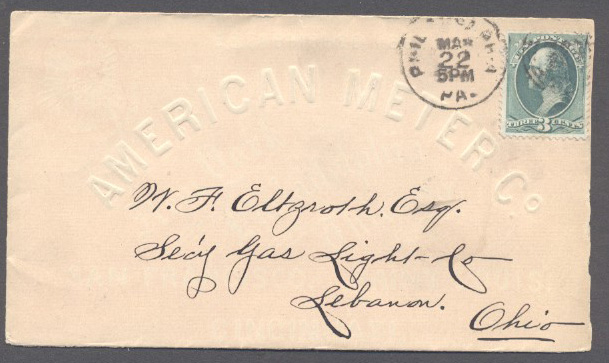 AMERICAN METER Co
PHILADELPHIA
MAR
22
5PM
PA.
U.S. POSTAGE
THREE 3 CENTS
W. F. Eltzroth. Esq.
Sec'y Gas Light Co
Lebanon.
Ohio